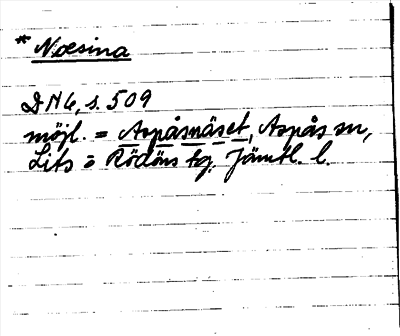 * Næsina
DN 6, s. 509
möjl. = Aspåsnäset, Aspås sn,
Lits o Rödöns tg. Jämtl. l.